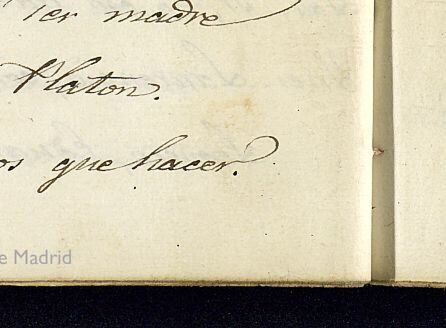 ser madre
Platon.
os que hacer.
e Madrid